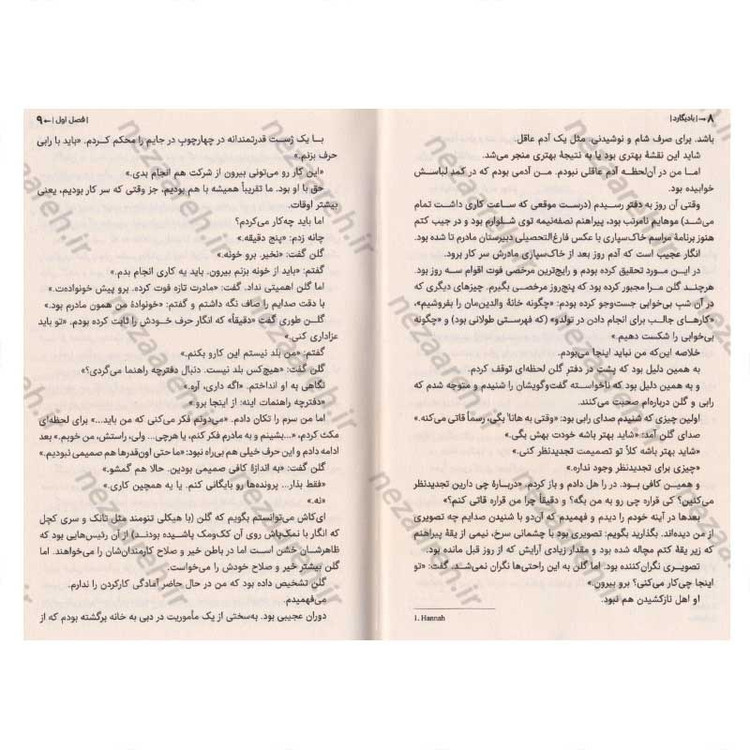 ۸ ← | بادیگارد |
باشد. برای صرف شام و نوشیدنی. مثل یک آدم عاقل.
شاید این نقشهٔ بهتری بود یا به نتیجهٔ بهتری منجر می‌شد.
اما من در آن‌لحظه آدم عاقلی نبودم. من آدمی بودم که در کمد لباسش
خوابیده بود.
وقتی آن روز به دفتر رسیدم (درست موقعی که ساعت کاری داشت تمام
می‌شد) موهایم نامرتب بود، پیراهنم نصفه‌نیمه توی شلوارم بود و در جیب کتم
هنوز برنامهٔ مراسم خاک‌سپاری با عکس فارغ‌التحصیلی دبیرستان مادرم تا شده بود.
انگار عجیب است که آدم روز بعد از خاک‌سپاری مادرش سر کار برود.
در این مورد تحقیق کرده بودم و رایج‌ترین مرخصی فوت اقوام سه روز بود.
هرچند گلن مرا مجبور کرده بود که پنج‌روز مرخصی بگیرم. چیزهای دیگری که
در آن شب بی‌خوابی جست‌وجو کرده بودم: «چگونه خانهٔ والدین‌مان را بفروشیم»،
«کارهای جالب برای انجام دادن در تولدو» (که فهرستی طولانی بود) و «چگونه
بی‌خوابی را شکست دهیم.»
خلاصه این‌که من نباید اینجا می‌بودم.
به همین دلیل بود که پشت در دفتر گلن لحظه‌ای توقف کردم.
و به همین دلیل بود که ناخواسته گفت‌وگویشان را شنیدم و متوجه شدم که
رابی و گلن درباره‌ام صحبت می‌کنند.
اولین چیزی که شنیدم صدای رابی بود: «وقتی به هانا¹ بگی، رسماً قاتی می‌کنه.»
صدای گلن آمد: «شاید بهتر باشه خودت بهش بگی.»
«شاید بهتر باشه کلاً تو تصمیمت تجدیدنظر کنی.»
«چیزی برای تجدیدنظر وجود نداره.»
و همین کافی بود. در را هل دادم و باز کردم. «دربارهٔ چی دارین تجدیدنظر
می‌کنین؟ کی قراره چی رو به من بگه؟ و دقیقاً چرا من قراره قاتی کنم؟»
بعدها در آینه خودم را دیدم و فهمیدم که آن‌دو با شنیدن صدایم چه تصویری
از من دیده‌اند. بگذارید بگویم: تصویری بود با چشمانی سرخ، نیمی از یقهٔ پیراهنم
که زیر یقهٔ کتم مچاله شده بود و مقدار زیادی آرایش که از روز قبل مانده بود.
تصویری نگران‌کننده بود. اما گلن به این راحتی‌ها نگران نمی‌شد. گفت: «تو
اینجا چی‌کار می‌کنی؟ برو بیرون.»
او اهل نازکشیدن هم نبود.
1. Hannah
| فصل اول | → ۹
با یک ژست قدرتمندانه در چهارچوب در جایم را محکم کردم. «باید با رابی
حرف بزنم.»
«این کار رو می‌تونی بیرون از شرکت هم انجام بدی.»
حق با او بود. ما تقریباً همیشه با هم بودیم، جز وقتی که سر کار بودیم، یعنی
بیشتر اوقات.
اما باید چه‌کار می‌کردم؟
چانه زدم: «پنج دقیقه.»
گلن گفت: «نخیر. برو خونه.»
گفتم: «باید از خونه بزنم بیرون. باید یه کاری انجام بدم.»
اما گلن اهمیتی نداد. گفت: «مادرت تازه فوت کرده. برو پیش خونواده‌ت.»
با دقت صدایم را صاف نگه داشتم و گفتم: «خونوادهٔ من همون مادرم بود.»
گلن طوری گفت «دقیقاً» که انگار حرف خودش را ثابت کرده بودم. «تو باید
عزاداری کنی.»
گفتم: «من بلد نیستم این کارو بکنم.»
گلن گفت: «هیچ‌کس بلد نیست. دنبال دفترچه راهنما می‌گردی؟»
نگاهی به او انداختم. «اگه داری، آره.»
«دفترچه راهنمات اینه: از اینجا برو.»
اما من سرم را تکان دادم. «می‌دونم فکر می‌کنی که من باید...» برای لحظه‌ای
مکث کردم، «...بشینم و به مادرم فکر کنم، یا هرچی... ولی، راستش، من خوبم.» بعد
ادامه دادم و این حرف خیلی هم بی‌راه نبود: «ما حتی اون‌قدرها هم صمیمی نبودیم.»
گلن گفت: «به اندازهٔ کافی صمیمی بودین. حالا هم گمشو.»
«فقط بذار... پرونده‌ها رو بایگانی کنم. یا یه همچین کاری.»
«نه.»
ای‌کاش می‌توانستم بگویم که گلن (با هیکلی تنومند مثل تانک و سری کچل
که انگار با نمک‌پاش روی آن کک‌ومک پاشیده بودند) از آن رئیس‌هایی بود که
ظاهرشان خشن است اما در باطن خیر و صلاح کارمندان‌شان را می‌خواهند. اما
گلن بیشتر خیر و صلاح خودش را می‌خواست.
گلن تشخیص داده بود که من در حال حاضر آمادگی کارکردن را ندارم.
می‌فهمیدم.
دوران عجیبی بود. به‌سختی از یک مأموریت در دبی به خانه برگشته بودم که از
nezaareh.ir